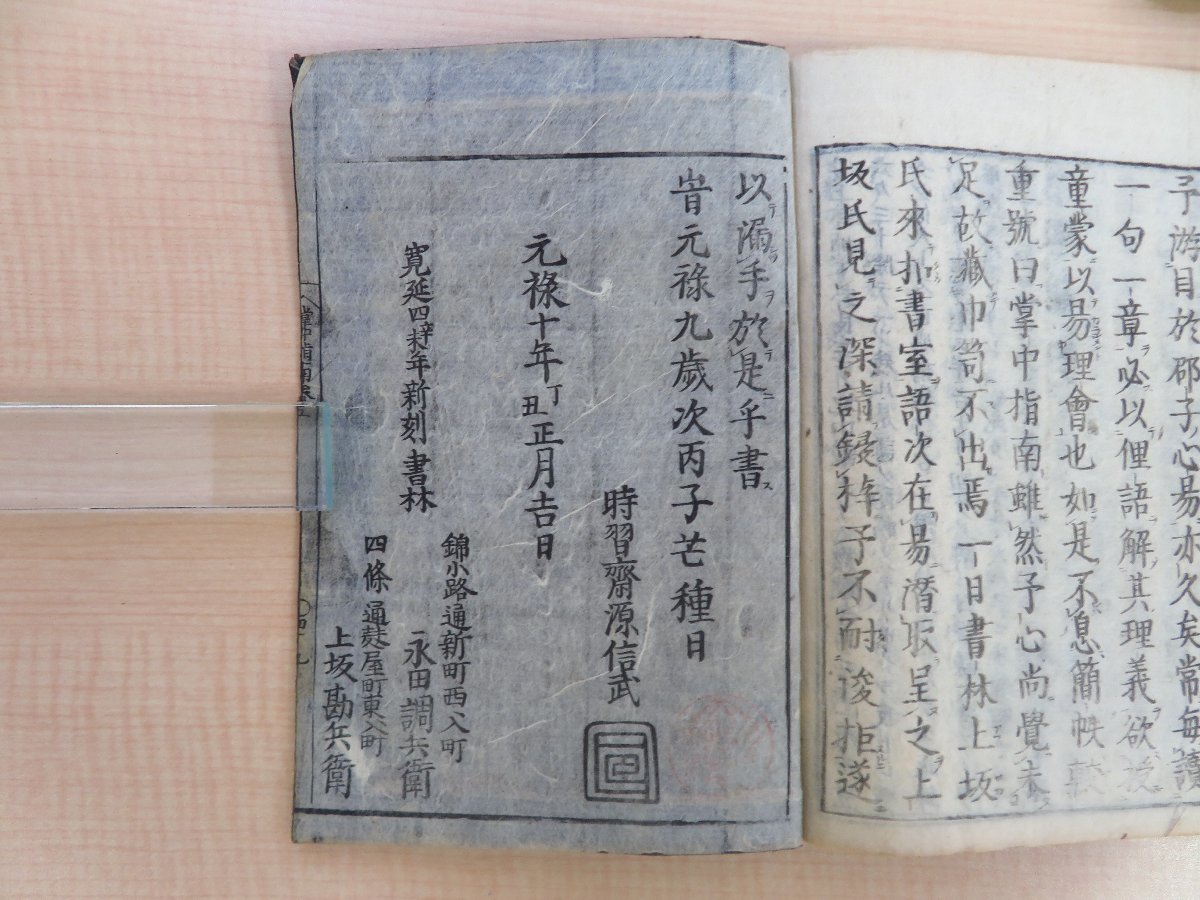 予游目於邵子心易亦久矣常毎讀
一句一章必以俚語解其理義欲授
童蒙以易理會也如是不息簡帙
重號曰掌中指南雖然予心尚覺未
足故藏巾笥不出焉一日書林上坂
氏來扣書室語次在易潛取呈之上
坂氏見之深請鋟梓予不耐逡拒遂
以溺手於是乎書
旹元祿九歲次丙子芒種日
時習齋源信武
元祿十年丁丑正月吉日
寛延四辛未年新刻 書林
錦小路通新町西入町
永田調兵衛
四條通麩屋町東入町
上坂勘兵衛